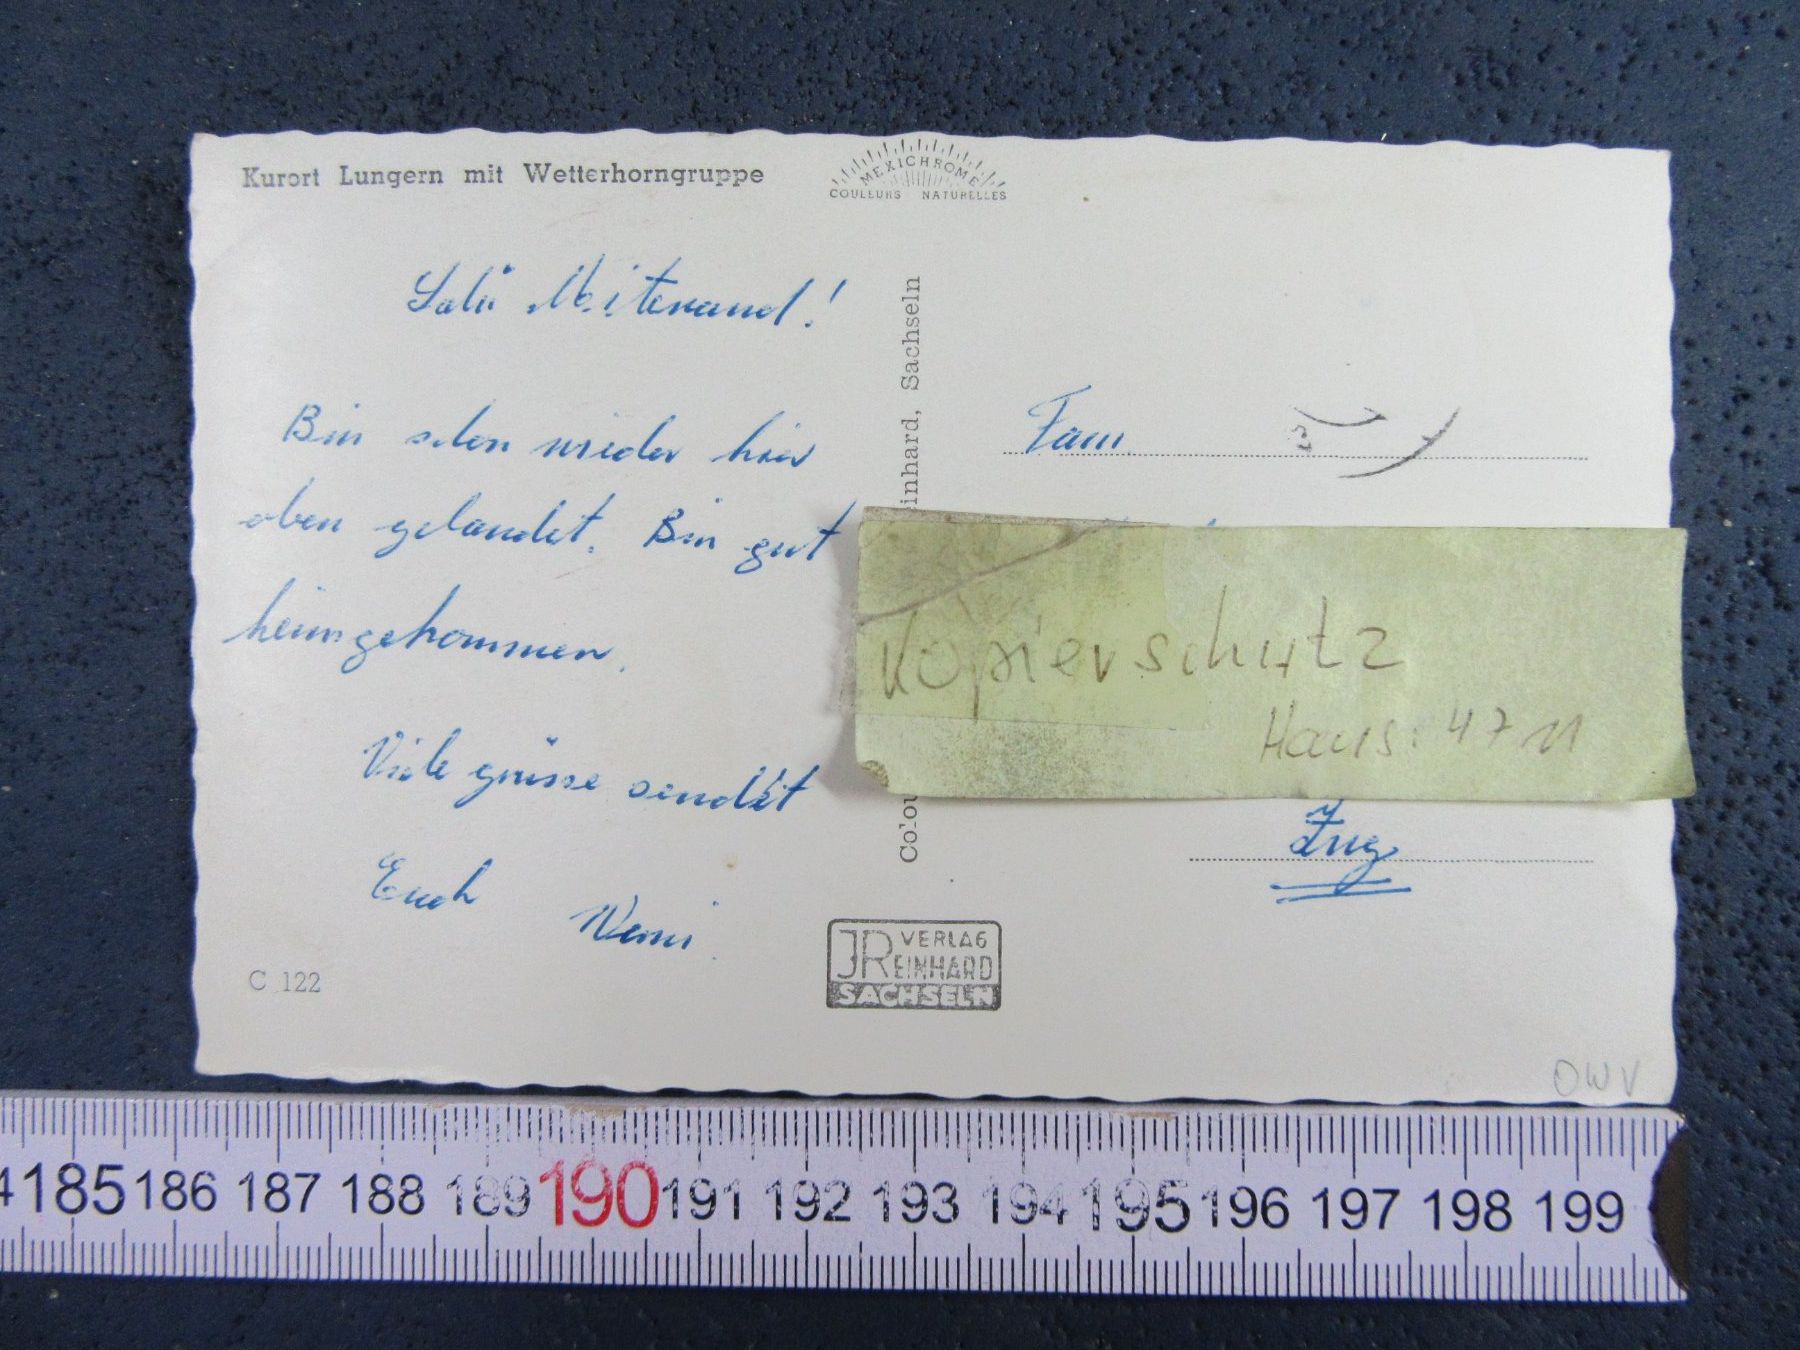 Kurort Lungern mit Wetterhorngruppe
MEXICHROME
COULEURS NATURELLES
Salü Miteinand!
Bin schon wieder hier
oben gelandet. Bin gut
heimgekommen.
Viele grüsse sendet
Euch
C 122
Colou
einhard, Sachseln
Fam.
Kopierschutz
Haus: 4711
Zug
JR VERLAG
EINHARD
SACHSELN
OWV
185 186 187 188 189 190 191 192 193 194 195 196 197 198 199